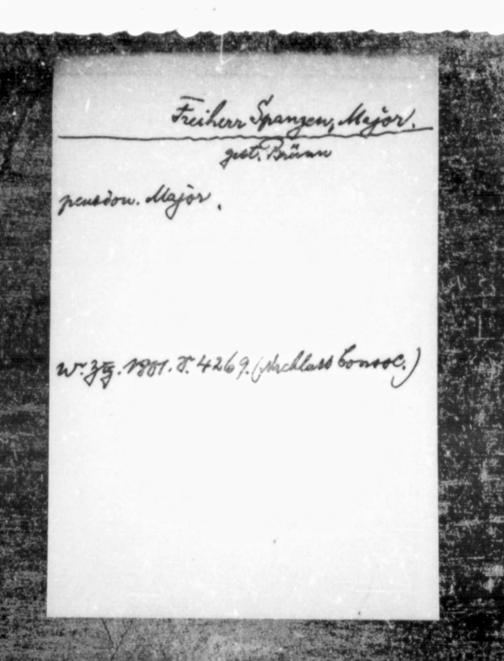 Freiherr Spangen, Major.
gest. Brünn
pension. Major.
W. Ztg. 1801. S. 4269. (Nachlass Convoc.)